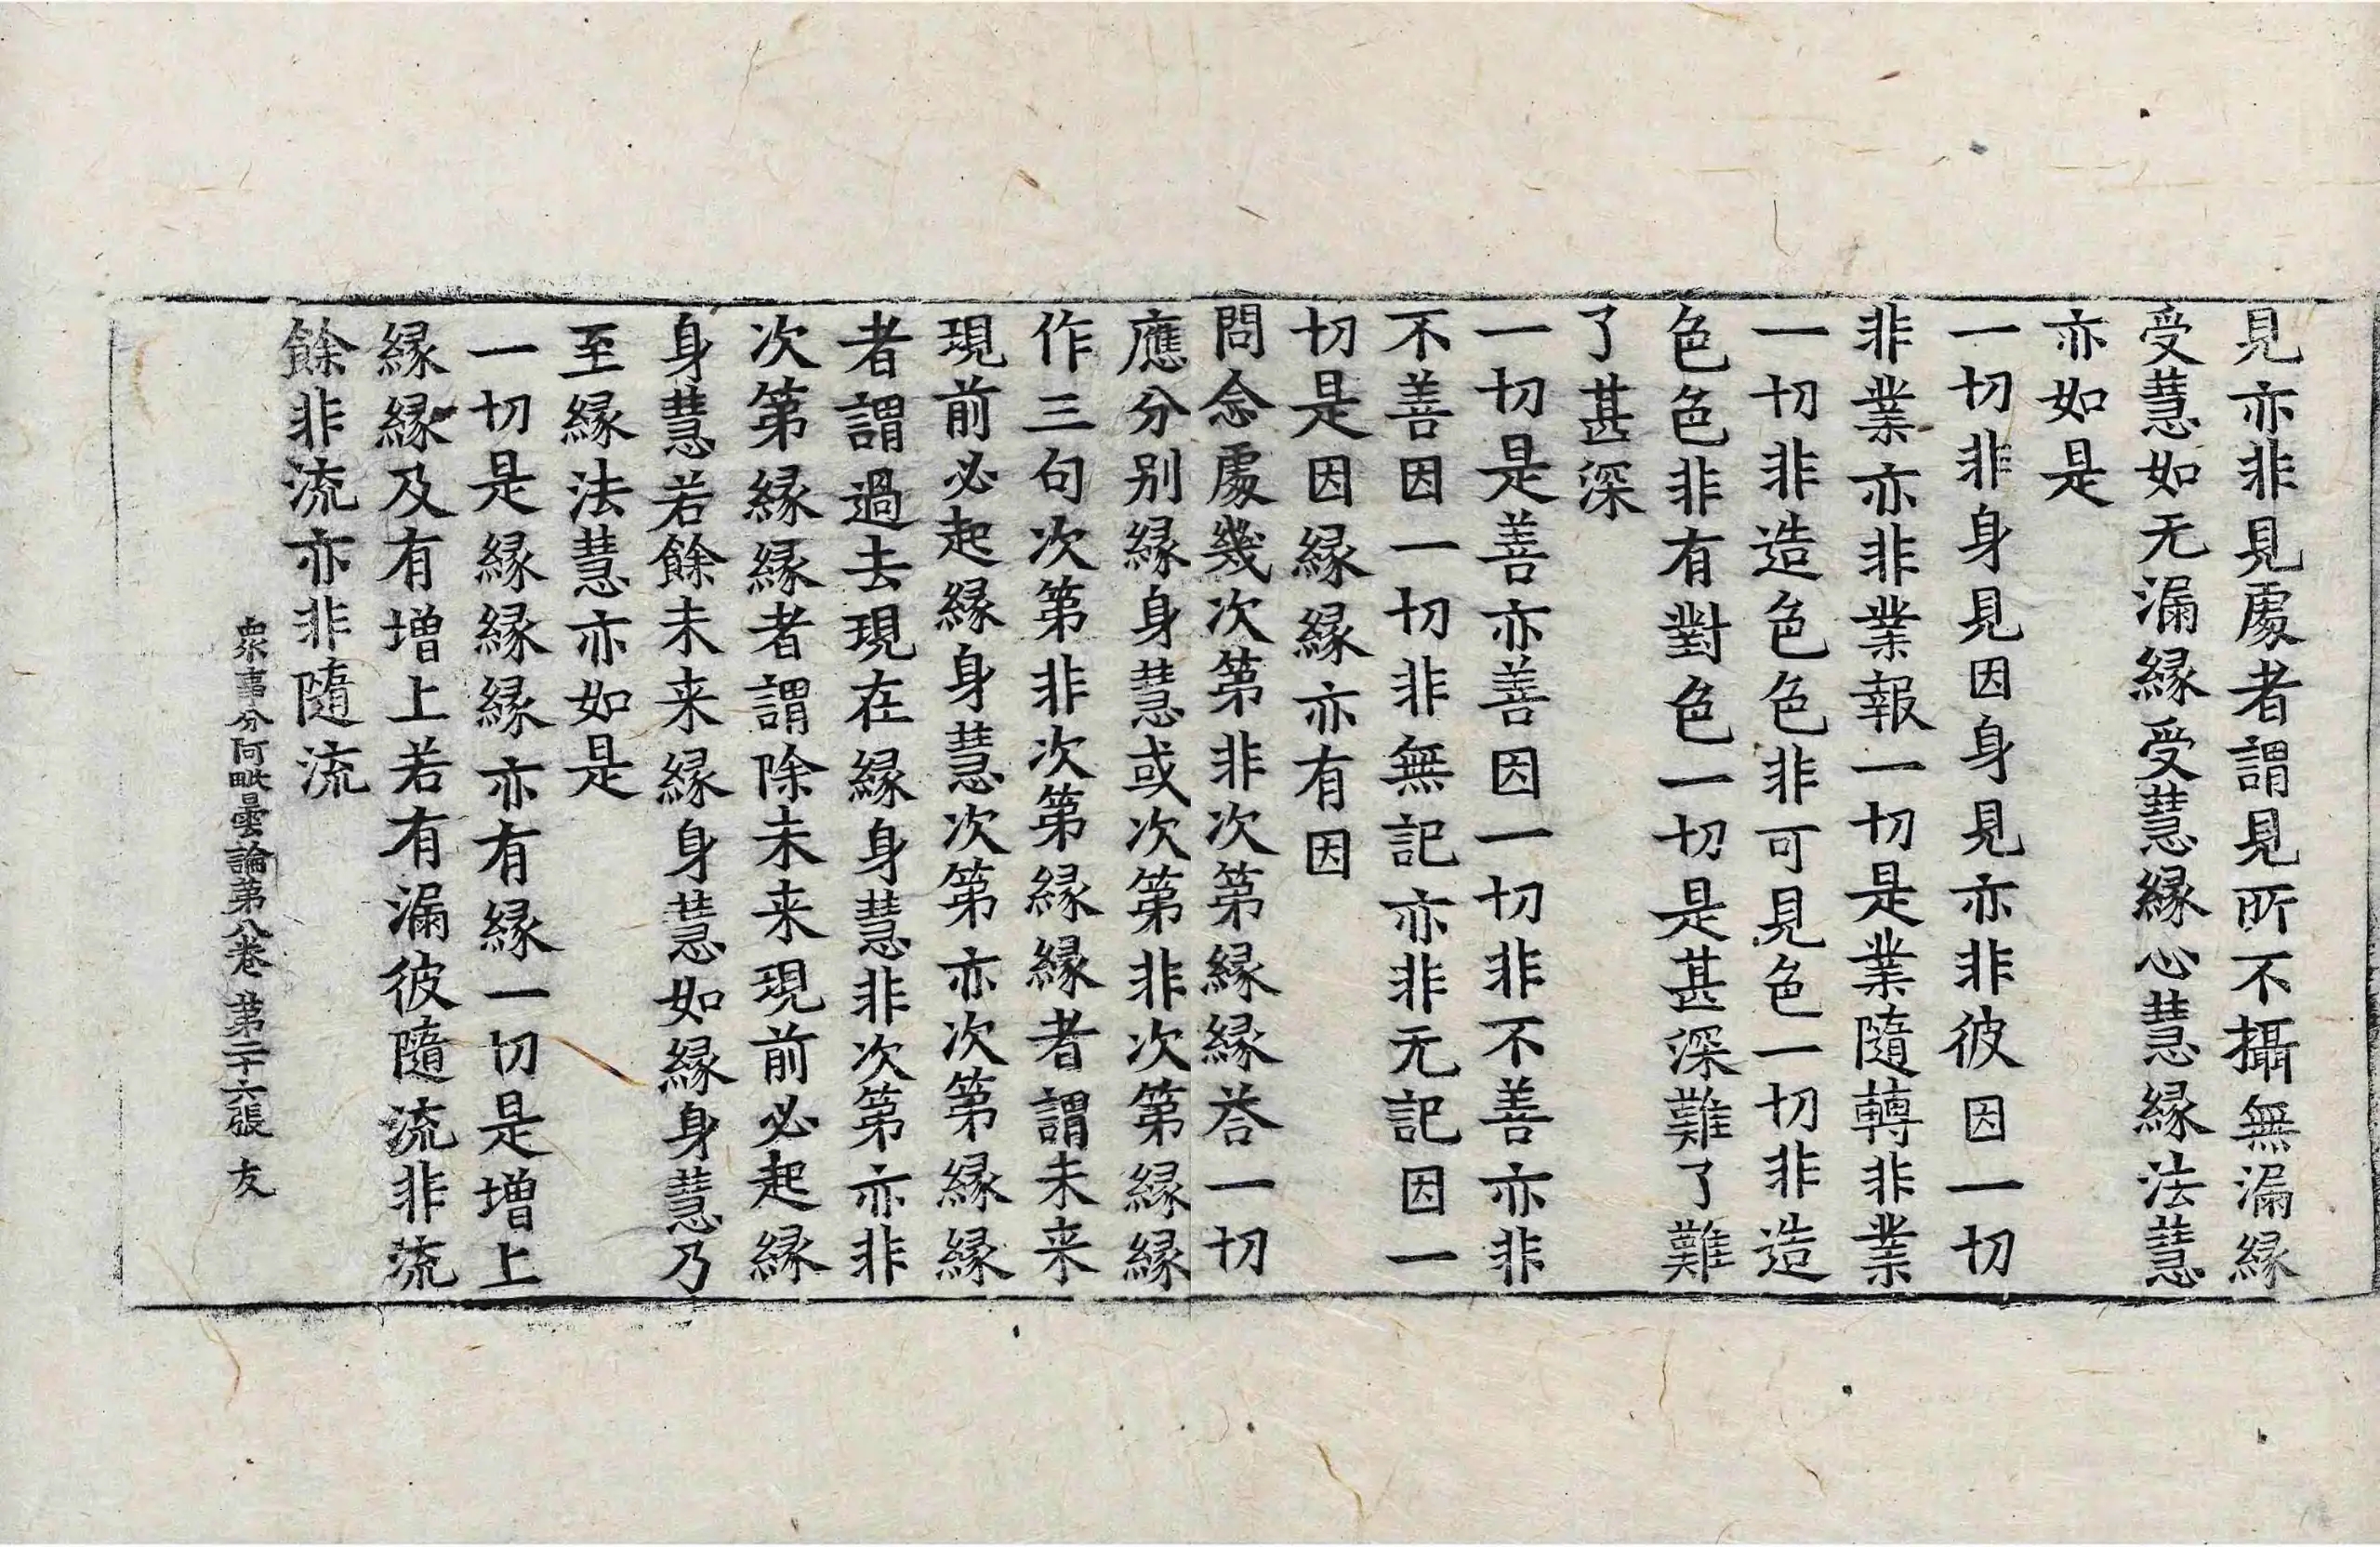 見亦非見處者謂見所不攝無漏緣
受慧如无漏緣受慧緣心慧緣法慧
亦如是
一切非身見因身見亦非彼因一切
非業亦非業報一切是業隨轉非業
一切非造色色非可見色一切非造
色色非有對色一切是甚深難了難
了甚深
一切是善亦善因一切非不善亦非
不善因一切非無記亦非无記因一
切是因緣緣亦有因
問念處幾次第非次第緣緣荅一切
應分别緣身慧或次第非次第緣緣
作三句次第非次第緣緣者謂未来
現前必起緣身慧次第亦次第緣緣
者謂過去現在緣身慧非次第亦非
次第緣緣者謂除未来現前必起緣
身慧若餘未来緣身慧如緣身慧乃
至緣法慧亦如是
一切是緣緣緣亦有緣一切是增上
緣緣及有增上若有漏彼隨流非流
餘非流亦非隨流
衆事分阿毗曇論第八卷 第二十六張 友